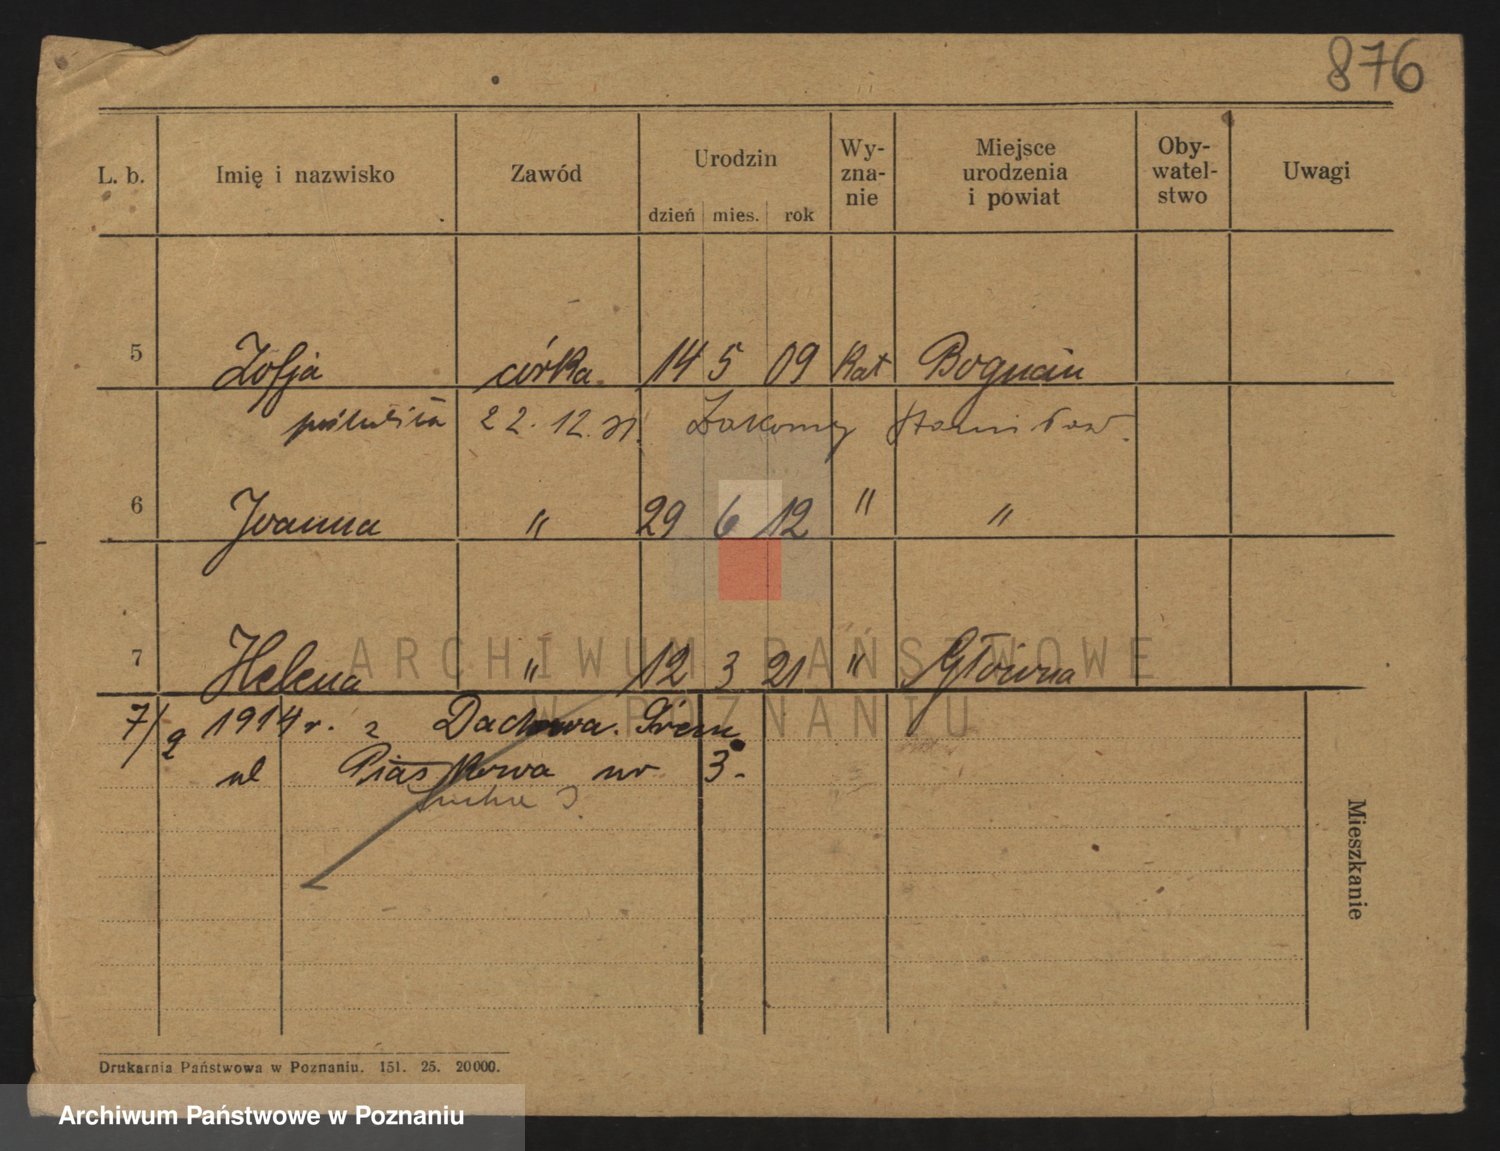 876
L. b. Imię i nazwisko Zawód Urodzin Wy-zna-nie Miejsce urodzenia i powiat Oby-watel-stwo Uwagi
dzień mies. rok
5 Zofja córka 14 5 09 kat Bogncin
22. 12. 31. Stanisław.
6 Joanna " 29 6 12 " "
7 Helena " 12 3 21 " Główna
7/2 1914 r. z Dachowa. Śrem
ul Piaskowa nr 3.
3
Mieszkanie
ARCHIWUM PAŃSTWOWE
W POZNANIU
Drukarnia Państwowa w Poznaniu. 151. 25. 20000.
Archiwum Państwowe w Poznaniu